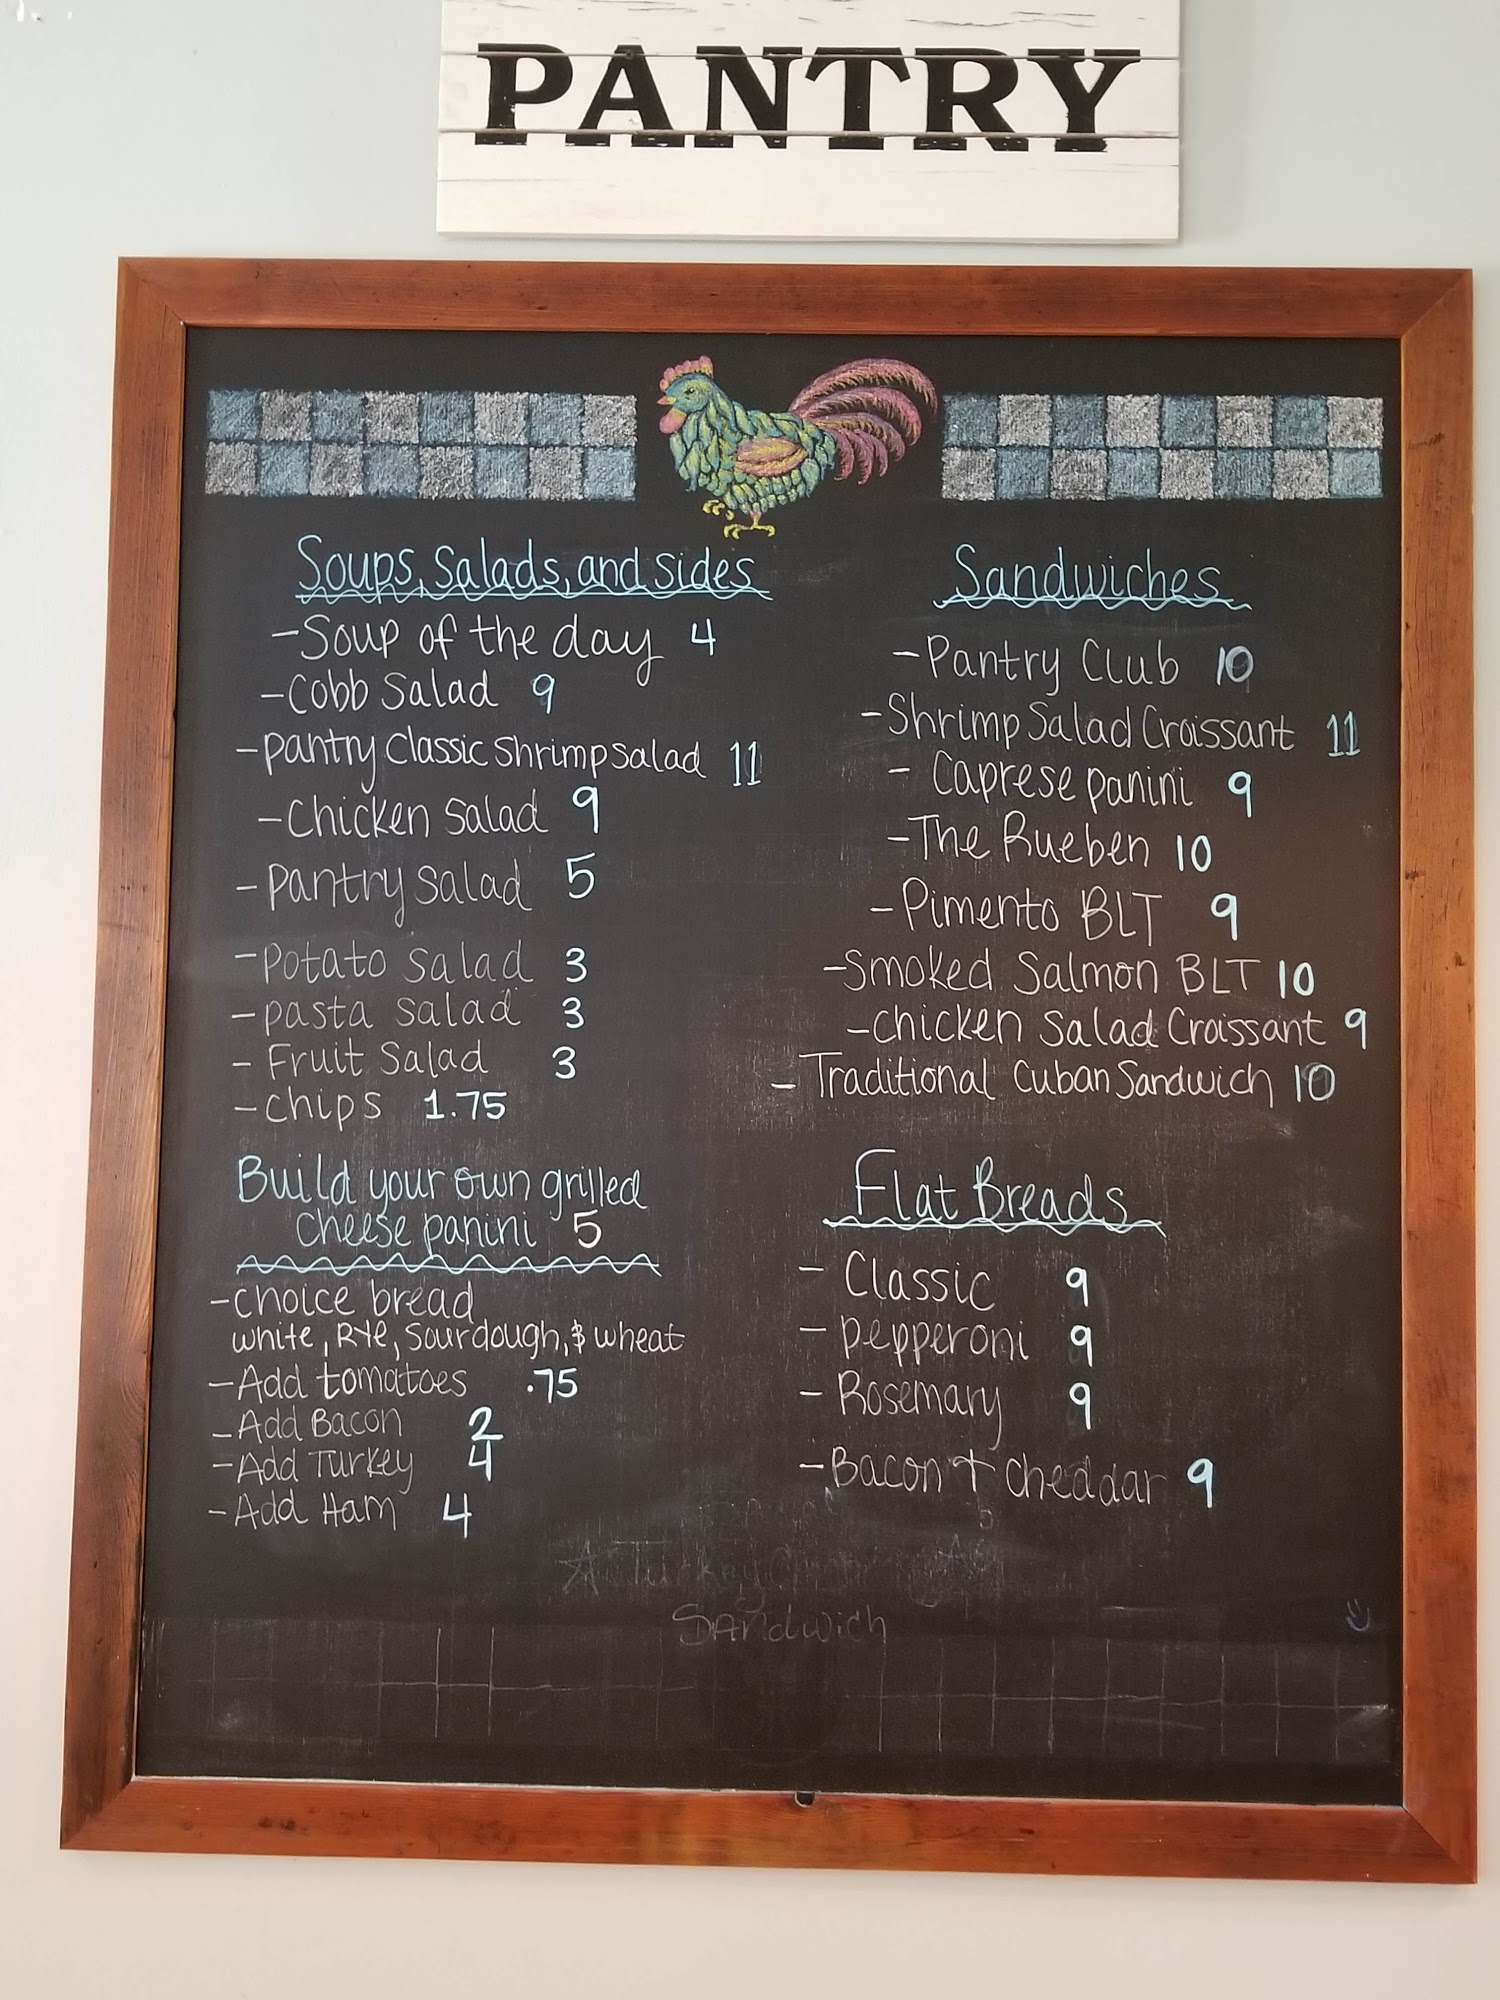 PANTRY
Soups, Salads, and sides
-Soup of the day 4
-Cobb Salad 9
-pantry Classic Shrimp salad 11
-Chicken Salad 9
-Pantry Salad 5
-Potato Salad 3
-pasta Salad 3
-Fruit Salad 3
-chips 1.75
Build your own grilled
cheese panini 5
-choice bread
white, Rye, Sourdough, & wheat
-Add tomatoes .75
-Add Bacon 2
-Add Turkey 4
-Add Ham 4
Sandwiches
-Pantry Club 10
-Shrimp Salad Croissant 11
-Caprese panini 9
-The Rueben 10
-Pimento BLT 9
-Smoked Salmon BLT 10
-Chicken Salad Croissant 9
-Traditional Cuban Sandwich 10
Flat Breads
-Classic 9
-pepperoni 9
-Rosemary 9
-Bacon + cheddar 9
Turkey
Sandwich